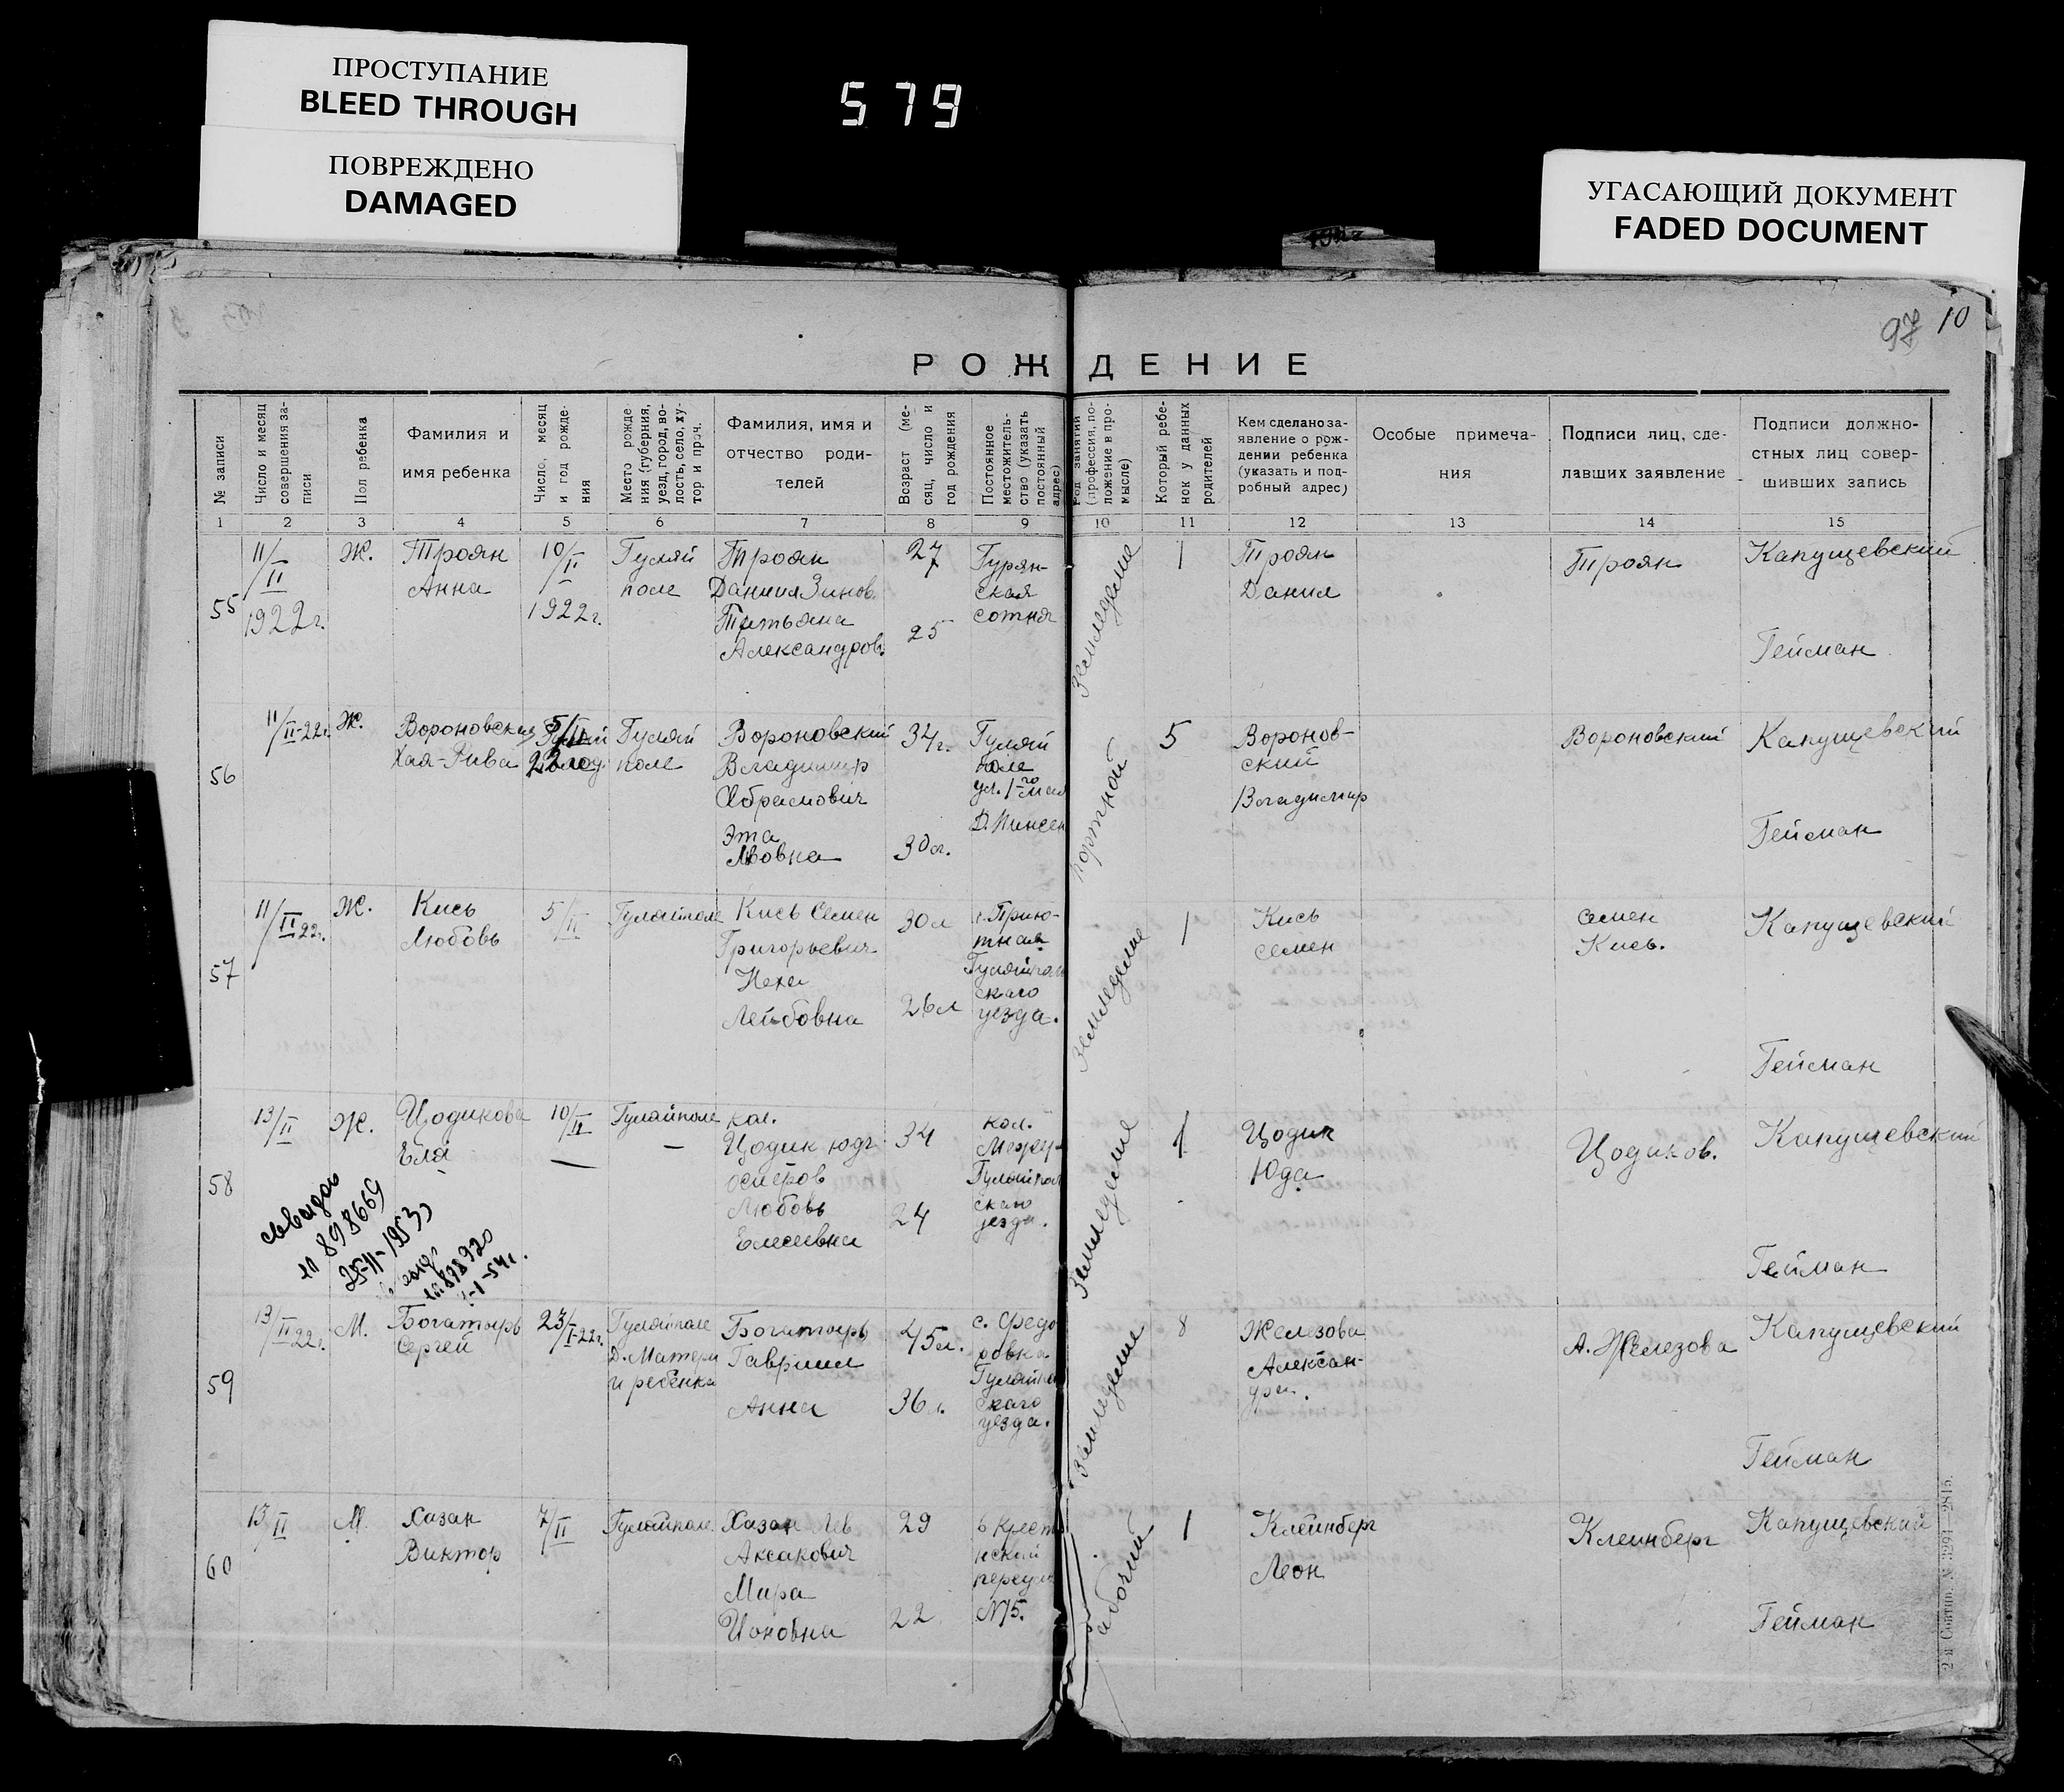 ПРОСТУПАНИЕ
BLEED THROUGH
ПОВРЕЖДЕНО
DAMAGED
579
УГАСАЮЩИЙ ДОКУМЕНТ
FADED DOCUMENT
97 10
РОЖДЕНИЕ
№ записи
Число и месяц
совершения за-
писи
Пол ребенка
Фамилия и
имя ребенка
Число, месяц
и год рожде-
ния
Место рожде
ния (губерния,
уезд, город, во-
лость, село, ху-
тор и проч.
Фамилия, имя и
отчество роди-
телей
Возраст (ме-
сяц, число и
год рождения
Постоянное
местожитель-
ство (указать
постоянный
адрес)
Род занятий
(профессия, по-
ложение в про-
мысле)
Который ребе-
нок у данных
родителей
Кем сделано за-
явление о рож-
дении ребенка
(указать и под-
робный адрес)
Особые примеча-
ния
Подписи лиц, сде-
лавших заявление
Подписи должно-
стных лиц совер-
шивших запись
1 2 3 4 5 6 7 8 9 10 11 12 13 14 15
55
11/II
1922г.
Ж.
Троян
Анна
10/II
1922г.
Гуляй
поле
Троян
Даниил Зинов.
Татьяна
Александров.
27
25
Гурян-
ская
сотня
Земледелие
1
Троян
Данил
Троян
Капущевский
Гейман
56
11/II-22г.
Ж.
Вороновская
Хая-Рива
5/II
22
Гуляй
поле
Вороновский
Владимир
Абрамович
Эта
Львовна
34г.
30л.
Гуляй
поле
ул. 1-го мая
портной
5
Воронов-
ский
Владимир
Вороновский
Капущевский
Гейман
57
11/II 22г.
Ж.
Кись
Любовь
5/II
Гуляйполе
Кись Семен
Григорьевич
Неха
Лейбовна
30л
26л
с. Прию-
тная
Гуляйполь
скаго
уезда.
земледелие
1
Кись
Семен
Семен
Кись.
Капущевский
Гейман
58
13/II
Ж.
Цодикова
Еля
10/II
—
Гуляйполе
—
кол.
Цодик Юда
Любовь
Елисевна
34
24
кол.
Межер-
Гуляйпол
скаго
уезда.
Земледелие
1
Цодик
Юда
Цодиков.
Капущевский
Гейман
898669
59
13/II 22г.
М.
Богатырь
Сергей
23/I-22г.
Гуляйполе
Д. Матери
и ребенка
Богатырь
Гавриил
Анна
45л.
36л.
с. Федо
ровка
Гуляйпол
скаго
уезда.
земледелие
8
Железова
Алексан-
дра.
А. Железова
Капущевский
Гейман
60
13/II
М.
Хазан
Виктор
7/II
Гуляйполе.
Хазан Лев
Аксакович
Мира
Ионовна
29
22
переул
№15.
рабочий
1
Клейнберг
Леон
Клеинберг
Капущевский
Гейман